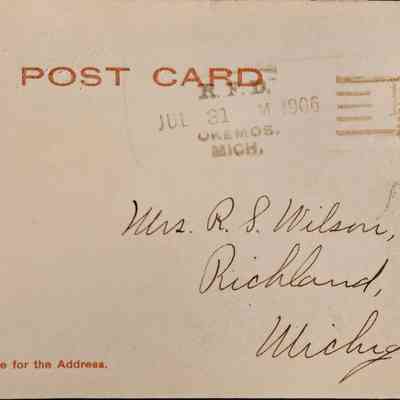 POST CARD
R. F. D.
JUL 31 M 1906
OKEMOS.
MICH.
Mrs. R. S. Wilson,
Richland,
Michig
e for the Address.